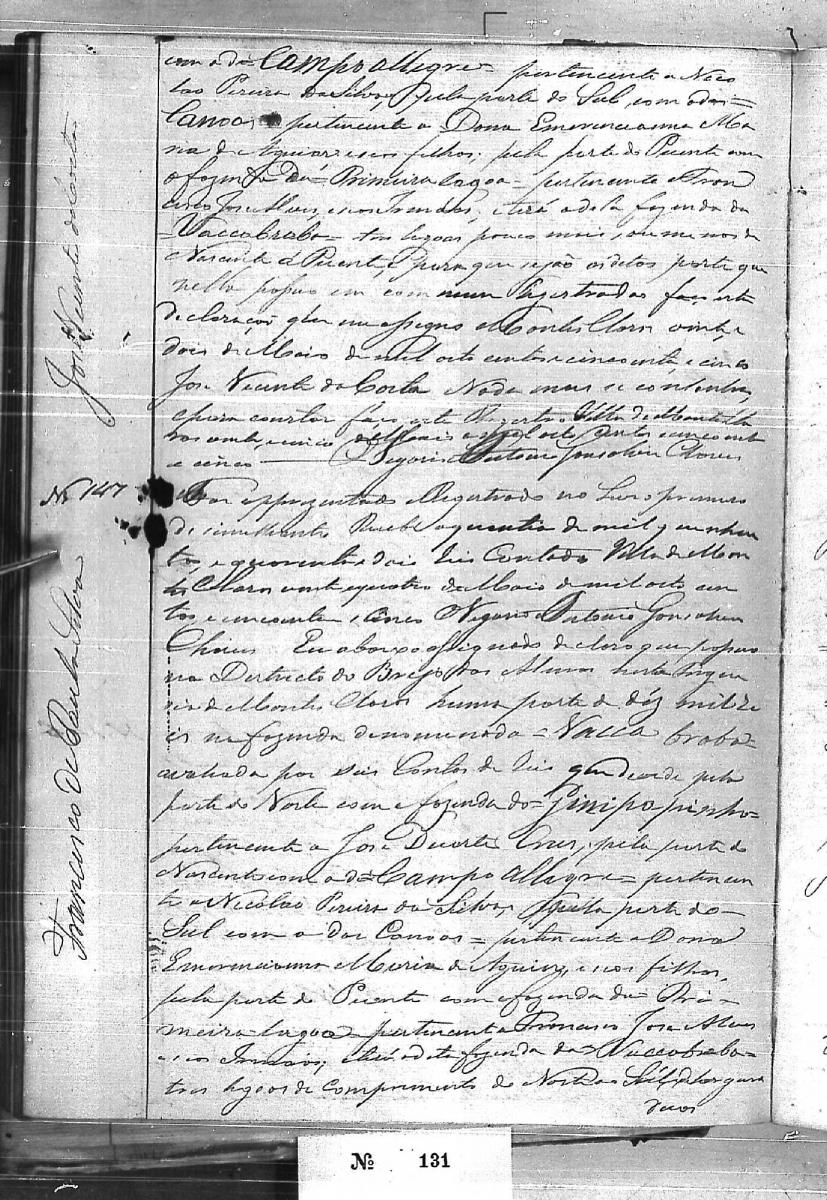 com a da = Campo Allegre = pertencente a Nico
lao Pereira da Silva, pela parte do Sul com a das =
Canoas = pertencente a Dona Emerencianna Ma
ria de Aguiar e seos filhos, pela parte do Poente com
a fazenda da = Primeira lagoa = pertencente a Fran
cisco Jose Alves, e seos Irmãos, e terá a dita fazenda da
= Vacca braba = tres legoas pouco mais, ou menos de
Nascente a Poente, E para que sejão as ditas parte que
nella posuo em commum Registradas faço esta
declaração que me assigno Montes Claros vinte e
dois de Maio de mil oito centos e cincoenta e cinco
Jose Vicente da Costa Nada mais se continha,
e para constar faço este Registro Villa de Montes Cla
ros vinte e cinco de Maio de mil oito centos cincoent
a e cinco O Vigario Antonio Gonsalves Chaves
Nº 147
Foi appresentado e Registrado no Livro primeiro
do vencimento Recebi a quantia de mil quinhen
tos, e quarenta e dois reis Contado Villa de Mon
tes Claros vinte e quatro de Maio de mil oito cen
tos e cincoenta e cinco Vigario Antonio Gonsalves
Chaves Eu abaixo assignado declaro que posuo
no Destricto do Brejo das Almas nesta Fregue
sia de Montes Claros huma parte de déz mil re
is na fazenda denominada = Vacca braba =
avaliada por seis Contos de reis que devide pela
parte do Norte com a fazenda do = Ginipapinho =
pertencente a Jose Duarte, pela parte do
Nascente com a da = Campo Allegre = pertencen
te a Nicolao Pereira da Silva, pela parte do
Sul com a das Canoas = pertencente a Dona
Emerencianna Maria de Aguiar, e seos filhos,
pela parte do Poente com a fazenda da Pri =
meira lagoa = pertencente a Francisco Jose Alves
e seos Irmãos, e terá a dita fazenda da = Vacca braba =
tres legoas de comprimento do Norte ao Sul, e largura
duas
Jose Vicente da Costa
Francisco de Paula Silva
Nº 131